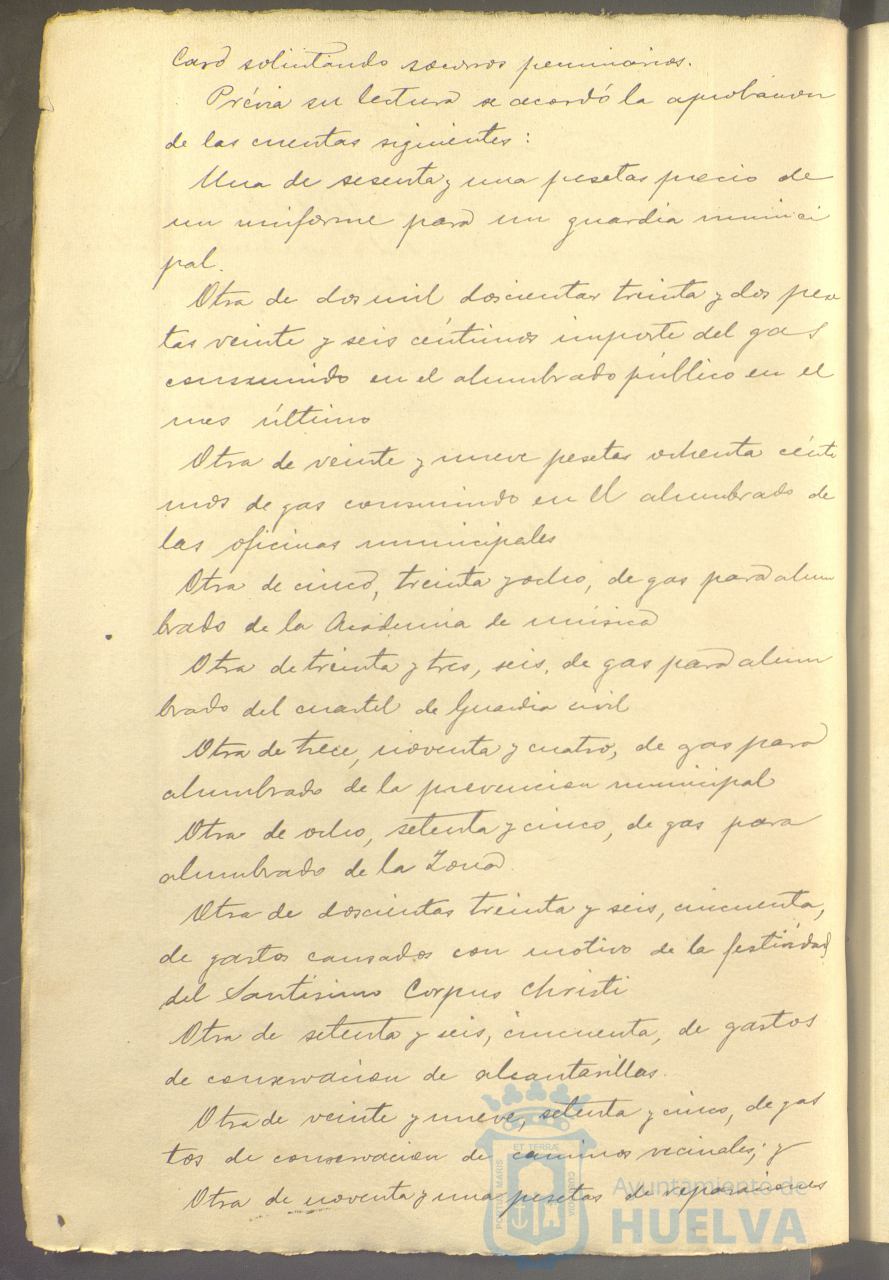 Caro solicitando socorros pecuniarios.
Prévia su lectura se acordó la aprobacion
de las cuentas siguientes:
Una de sesenta y una pesetas precio de
un uniforme para un guardia munici
pal.
Otra de dos mil doscientas treinta y dos pese
tas veinte y seis céntimos importe del gas
consumido en el alumbrado público en el
mes último
Otra de veinte y nueve pesetas ochenta cénti
mos de gas consumido en el alumbrado de
las oficinas municipales
Otra de cinco, treinta y ocho, de gas para alum
brado de la Academia de música
Otra de treinta y tres, seis, de gas para alum
brado del cuartel de Guardia civil
Otra de trece, noventa y cuatro, de gas para
alumbrado de la prevencion municipal
Otra de ocho, setenta y cinco, de gas para
alumbrado de la Zona.
Otra de doscientas treinta y seis, cincuenta,
de gastos causados con motivo de la festividad
del Santísimo Corpus Christi
Otra de setenta y seis, cincuenta, de gastos
de conservacion de alcantarillas.
Otra de veinte y nueve, setenta y cinco, de gas
tos de conservacion de caminos vecinales; y
Otra de noventa y una pesetas de reparaciones
PORTUS MARIS
ET TERRAE
CUSTODIA
Ayuntamiento de
HUELVA